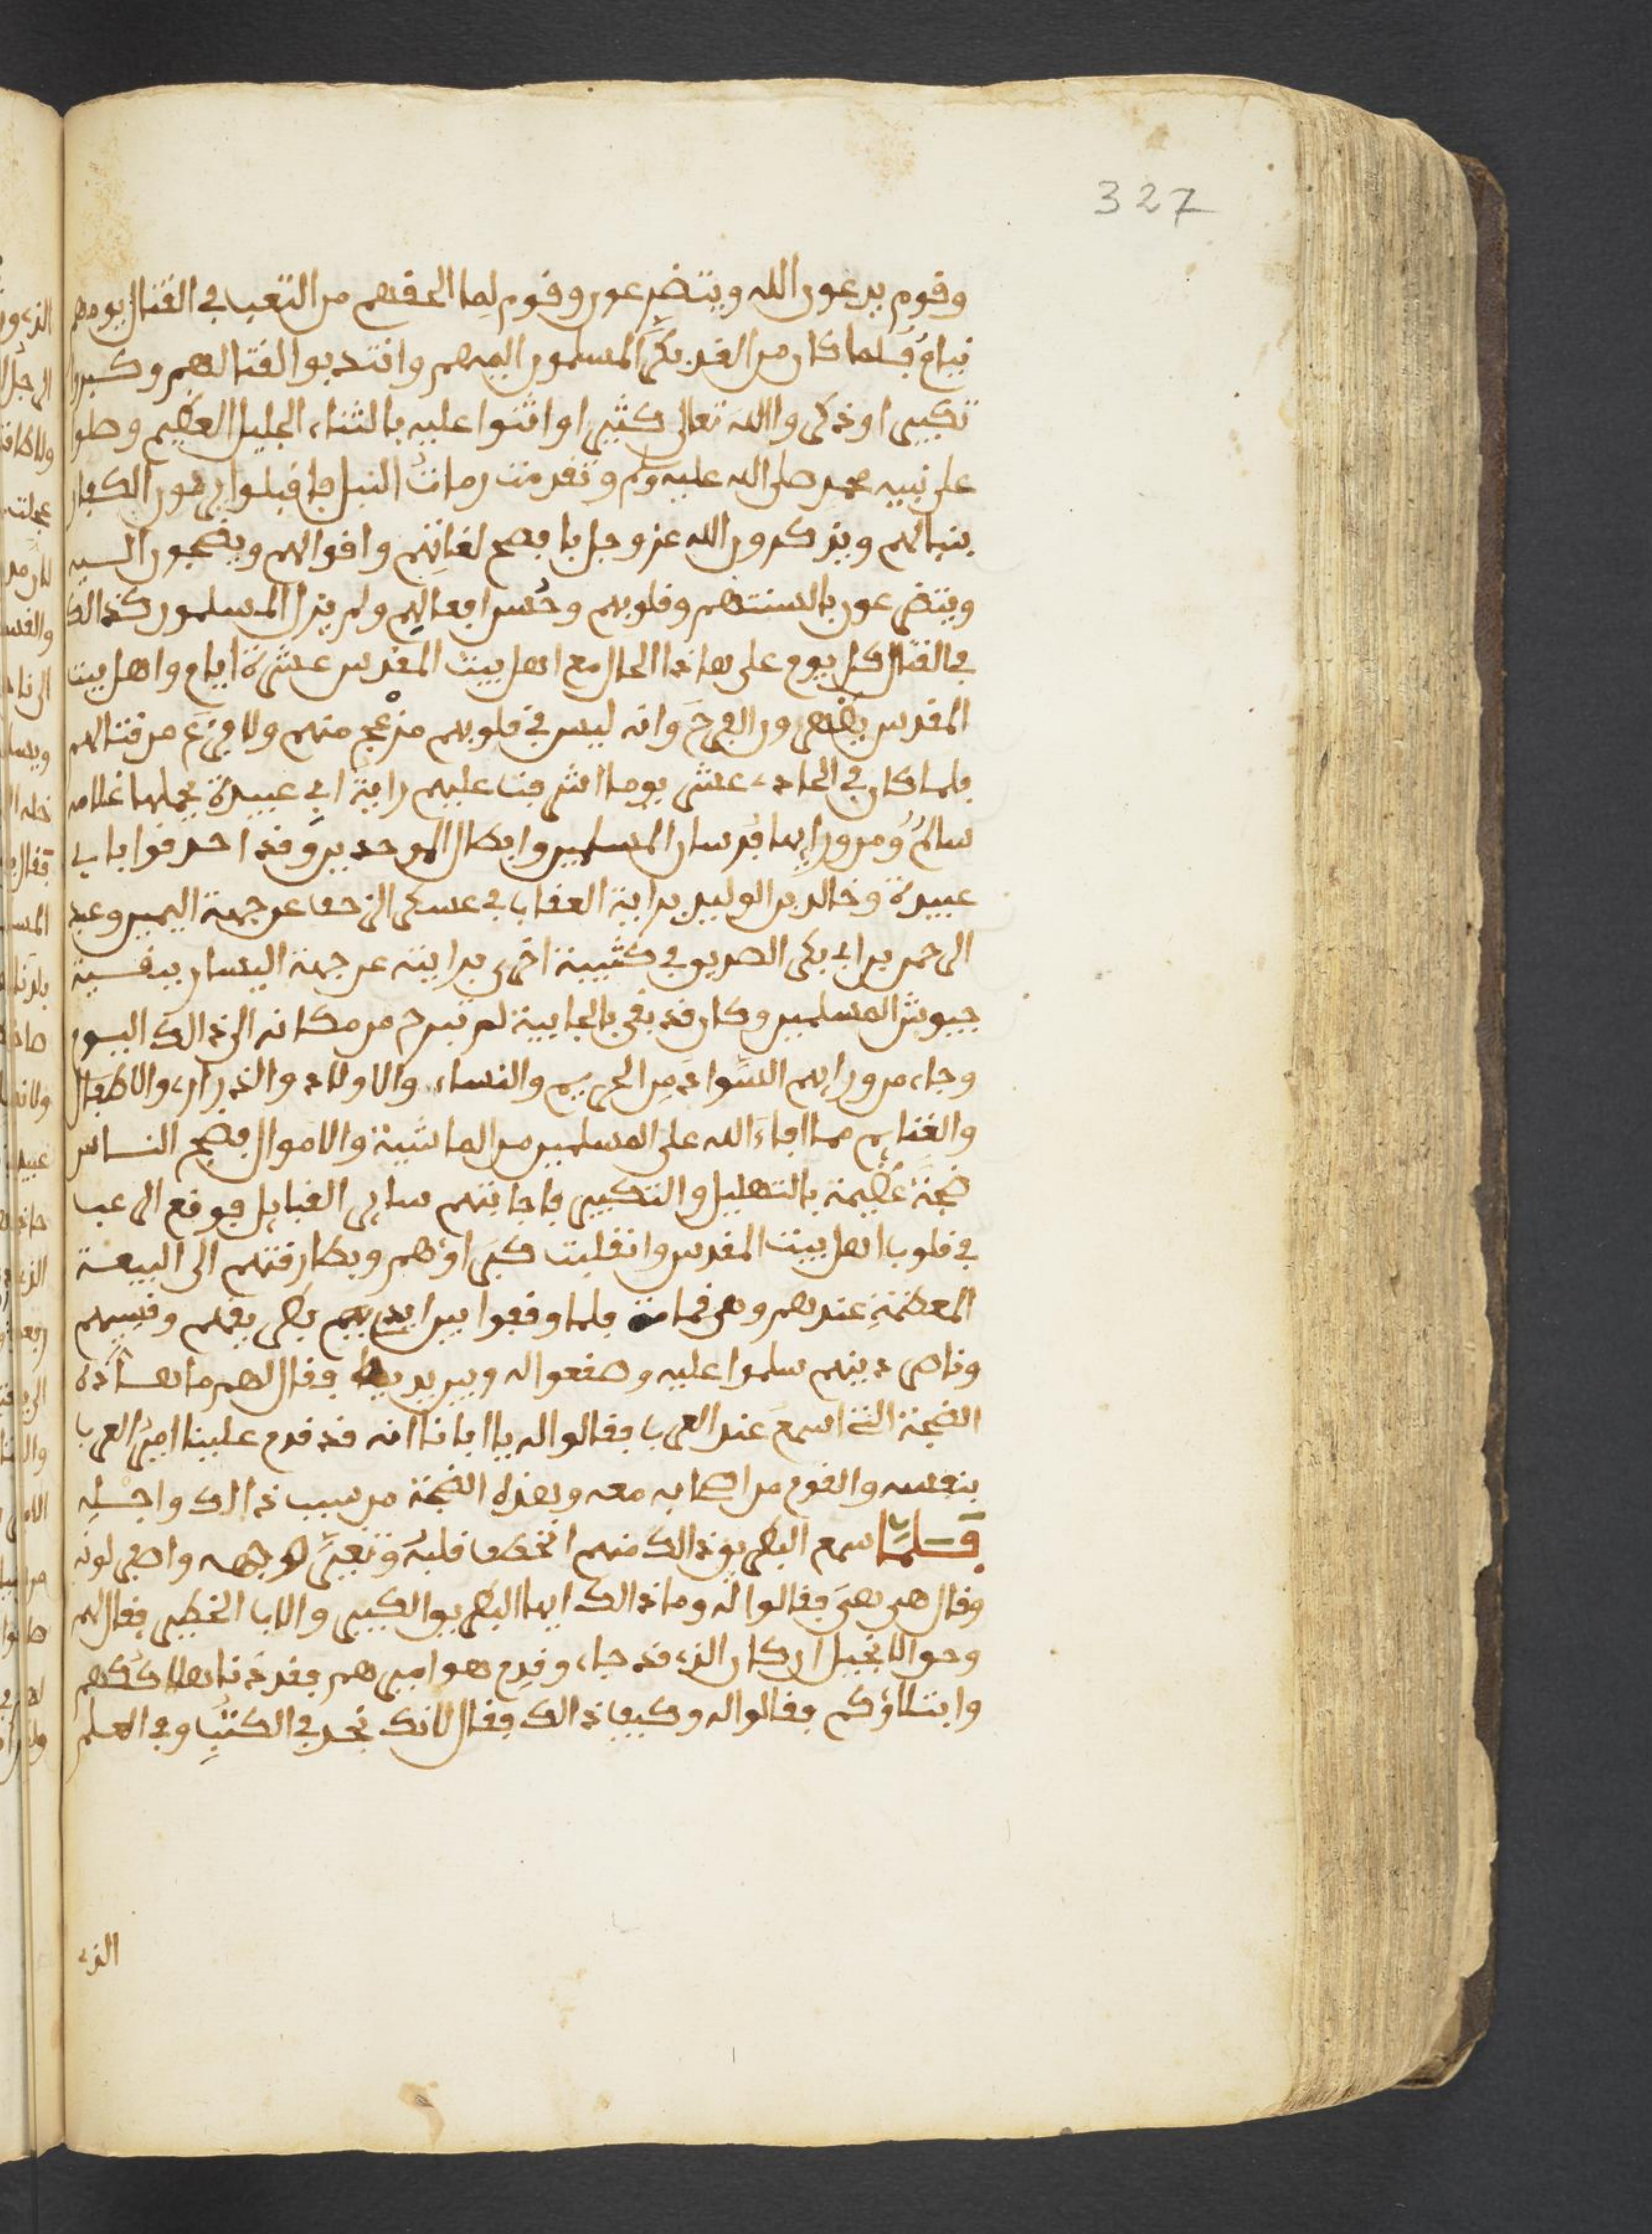 327
وقوم يدعون الله ويتضرعون وقوم لما الحقهم من التعب في القتال يومهم
نيام فلما كان من الغد بكر المسلمون اليهم وانتدبوا لقتالهم وكبروا
تكبيرا وذكروا الله تعالى كثيرا واثنوا عليه بالثناء الجليل العظيم وصلوا
على نبيه محمد صلى الله عليه وسلم وتقدمت رمات النبل فاقبلوا يرمون الكفار
بنبالهم ويذكرون الله عز وجل بافصح لغاتهم واقوالهم ويضجون اليه
ويتضرعون بالسنتهم وقلوبهم وحسن افعالهم ولم يزل المسلمون كذالك
في القتال كل يوم على هاذا الحال مع اهل بيت المقدس عشرة ايام واهل بيت
المقدس يظهرون الفرح وانه ليس في قلوبهم مزعج منهم ولا فزع من قتالهم
فلما كان في الحادي عشر يوما اشرفت عليهم راية ابي عبيدة يحملها غلامه
سالم ومن ورايها فرسان المسلمين وابطال الموحدين وقد احدقوا بابي
عبيدة وخالد بن الوليد براية العقاب في عسكر الزحف عن جهة اليمين وعبد
الرحمن بن ابي بكر الصديق في كتيبة اخرى برايته عن جهة اليسار ببقية
جيوش المسلمين وكان قد بقي بالجابية لم تبرح من مكانه الى ذالك اليوم
وجاء من ورايهم السواد من الحريم والنساء والاولاد والذراري والاطفال
والغنايم مما افاء الله على المسلمين من الماشية والاموال فضج الناس
ضجة عظيمة بالتهليل والتكبير فاجابتهم ساير القبايل فوقع الرعب
في قلوب اهل بيت المقدس وانقلبت كبراؤهم وبطارقتهم الى البيعة
المعظمة عندهم وهي قمامة فلما وقفوا بين ايديهم بطريقهم وقسيسهم
وناصر دينهم سلموا عليه وصفعوا له وبين يديه فقال لهم ما هاذه
الضجة التي اسمع عند العرب فقالوا له يا ابانا انه قد قدم علينا امير العرب
بنفسه والقوم من اصحابه معه وهذه الضجة من سبب ذالك واجله
فلما سمع البطريق ذالك منهم انخطف قلبه وتغير وجهه واصفر لونه
وقال هي هي فقالوا له وما ذالك ايها البطريق الكبير والاب الخطير فقال لهم
وحو الانجيل ان كان الذي قد جاء وقدم هو اميرهم فقد دنا هلاككم
وابتلاؤكم فقالوا له وكيف ذالك فقال لانك نجد في الكتب وفي العلم
الذي